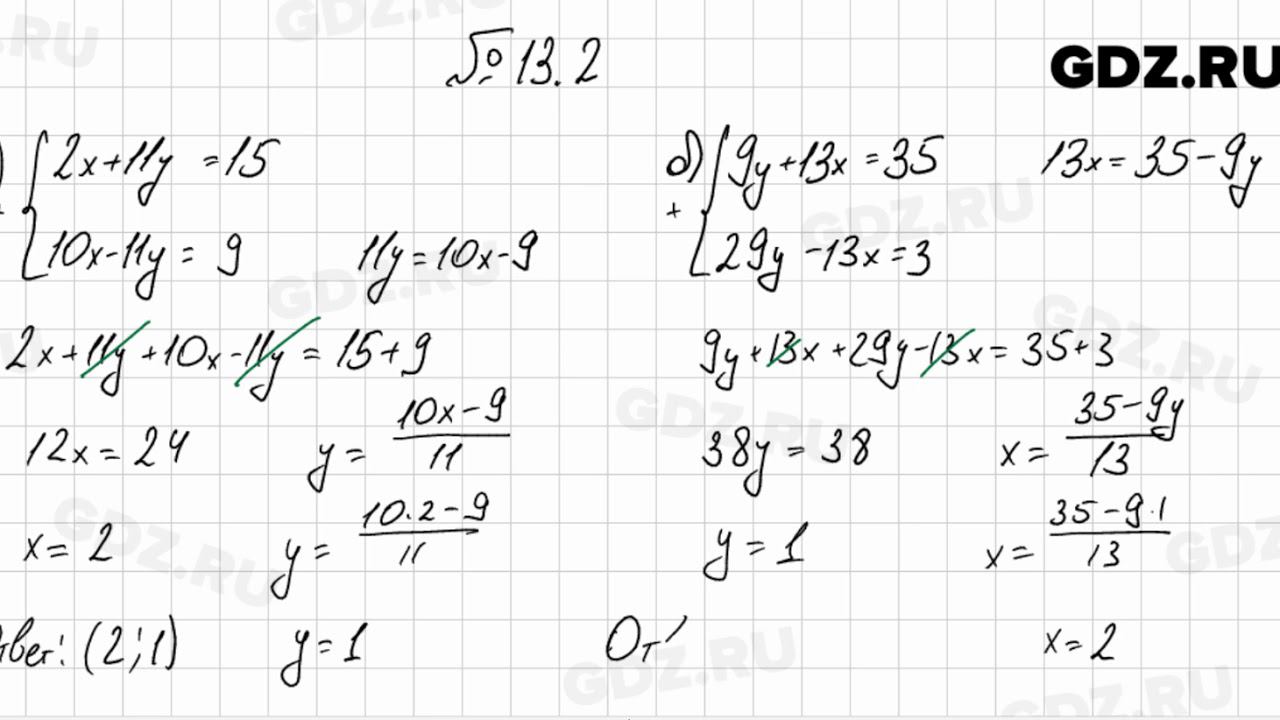 № 13.2
GDZ.RU
) { 2x+11y = 15
10x-11y = 9
11y = 10x-9
2x+11y+10x-11y = 15+9
12x = 24
y = (10x-9)/11
x = 2
y = (10·2-9)/11
твет: (2;1)
y = 1
б) { 9y+13x = 35
13x = 35-9y
+
29y-13x = 3
9y+13x+29y-13x = 35+3
38y = 38
x = (35-9y)/13
y = 1
x = (35-9·1)/13
От
x = 2